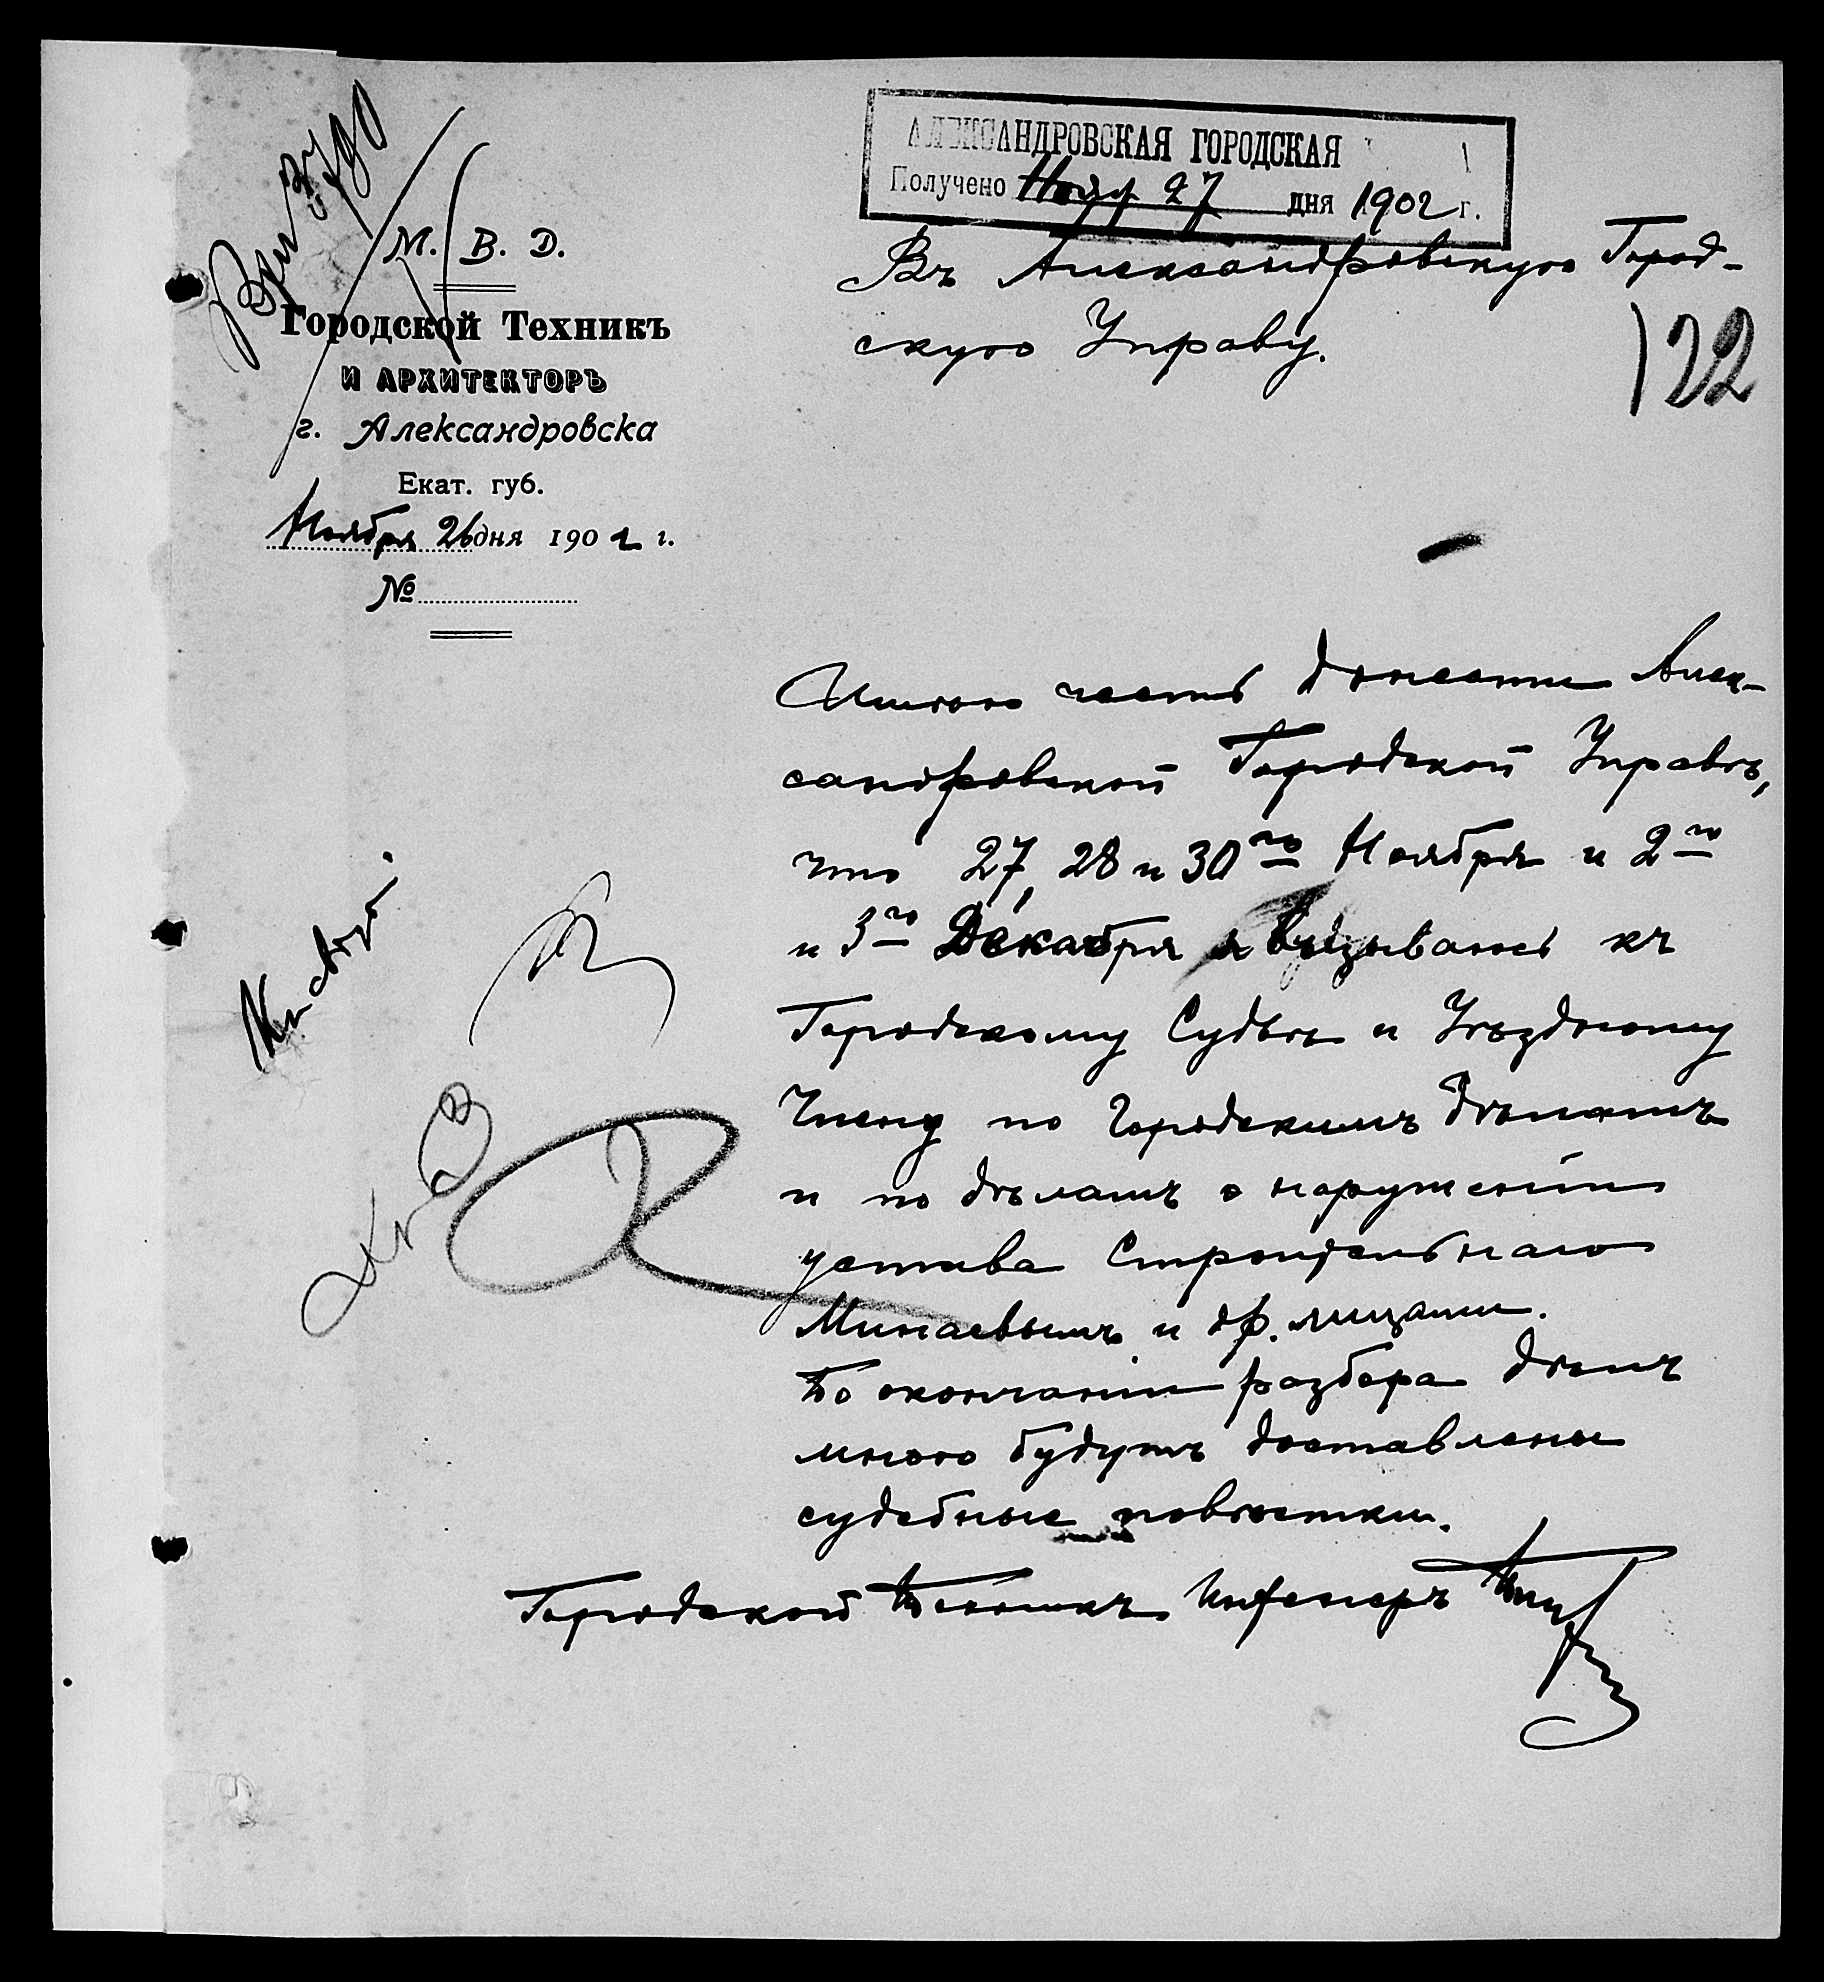 АЛЕКСАНДРОВСКАЯ ГОРОДСКАЯ
Получено Нояб 27 дня 1902 г.
М. В. Д.
Городской Техникъ
И АРХИТЕКТОРЪ
г. Александровска
Екат. губ.
Ноября 26 дня 1902 г.
№
Въ Александровскую Город-
скую Управу.
122
Имѣю честь донести Алек-
сандровской Городской Управѣ,
что 27, 28 и 30го Ноября и 2го
и 3го Декабря я вызываюсь къ
Городскому Судьѣ и Уѣздному
Члену по Городскимъ дѣламъ
и по дѣламъ о нарушеніи
устава Строительнаго
Минаевымъ и др. лицами.
По окончаніи разбора дѣлъ
мною будутъ доставлены
судебные повѣстки.
Городской Техникъ Инженеръ